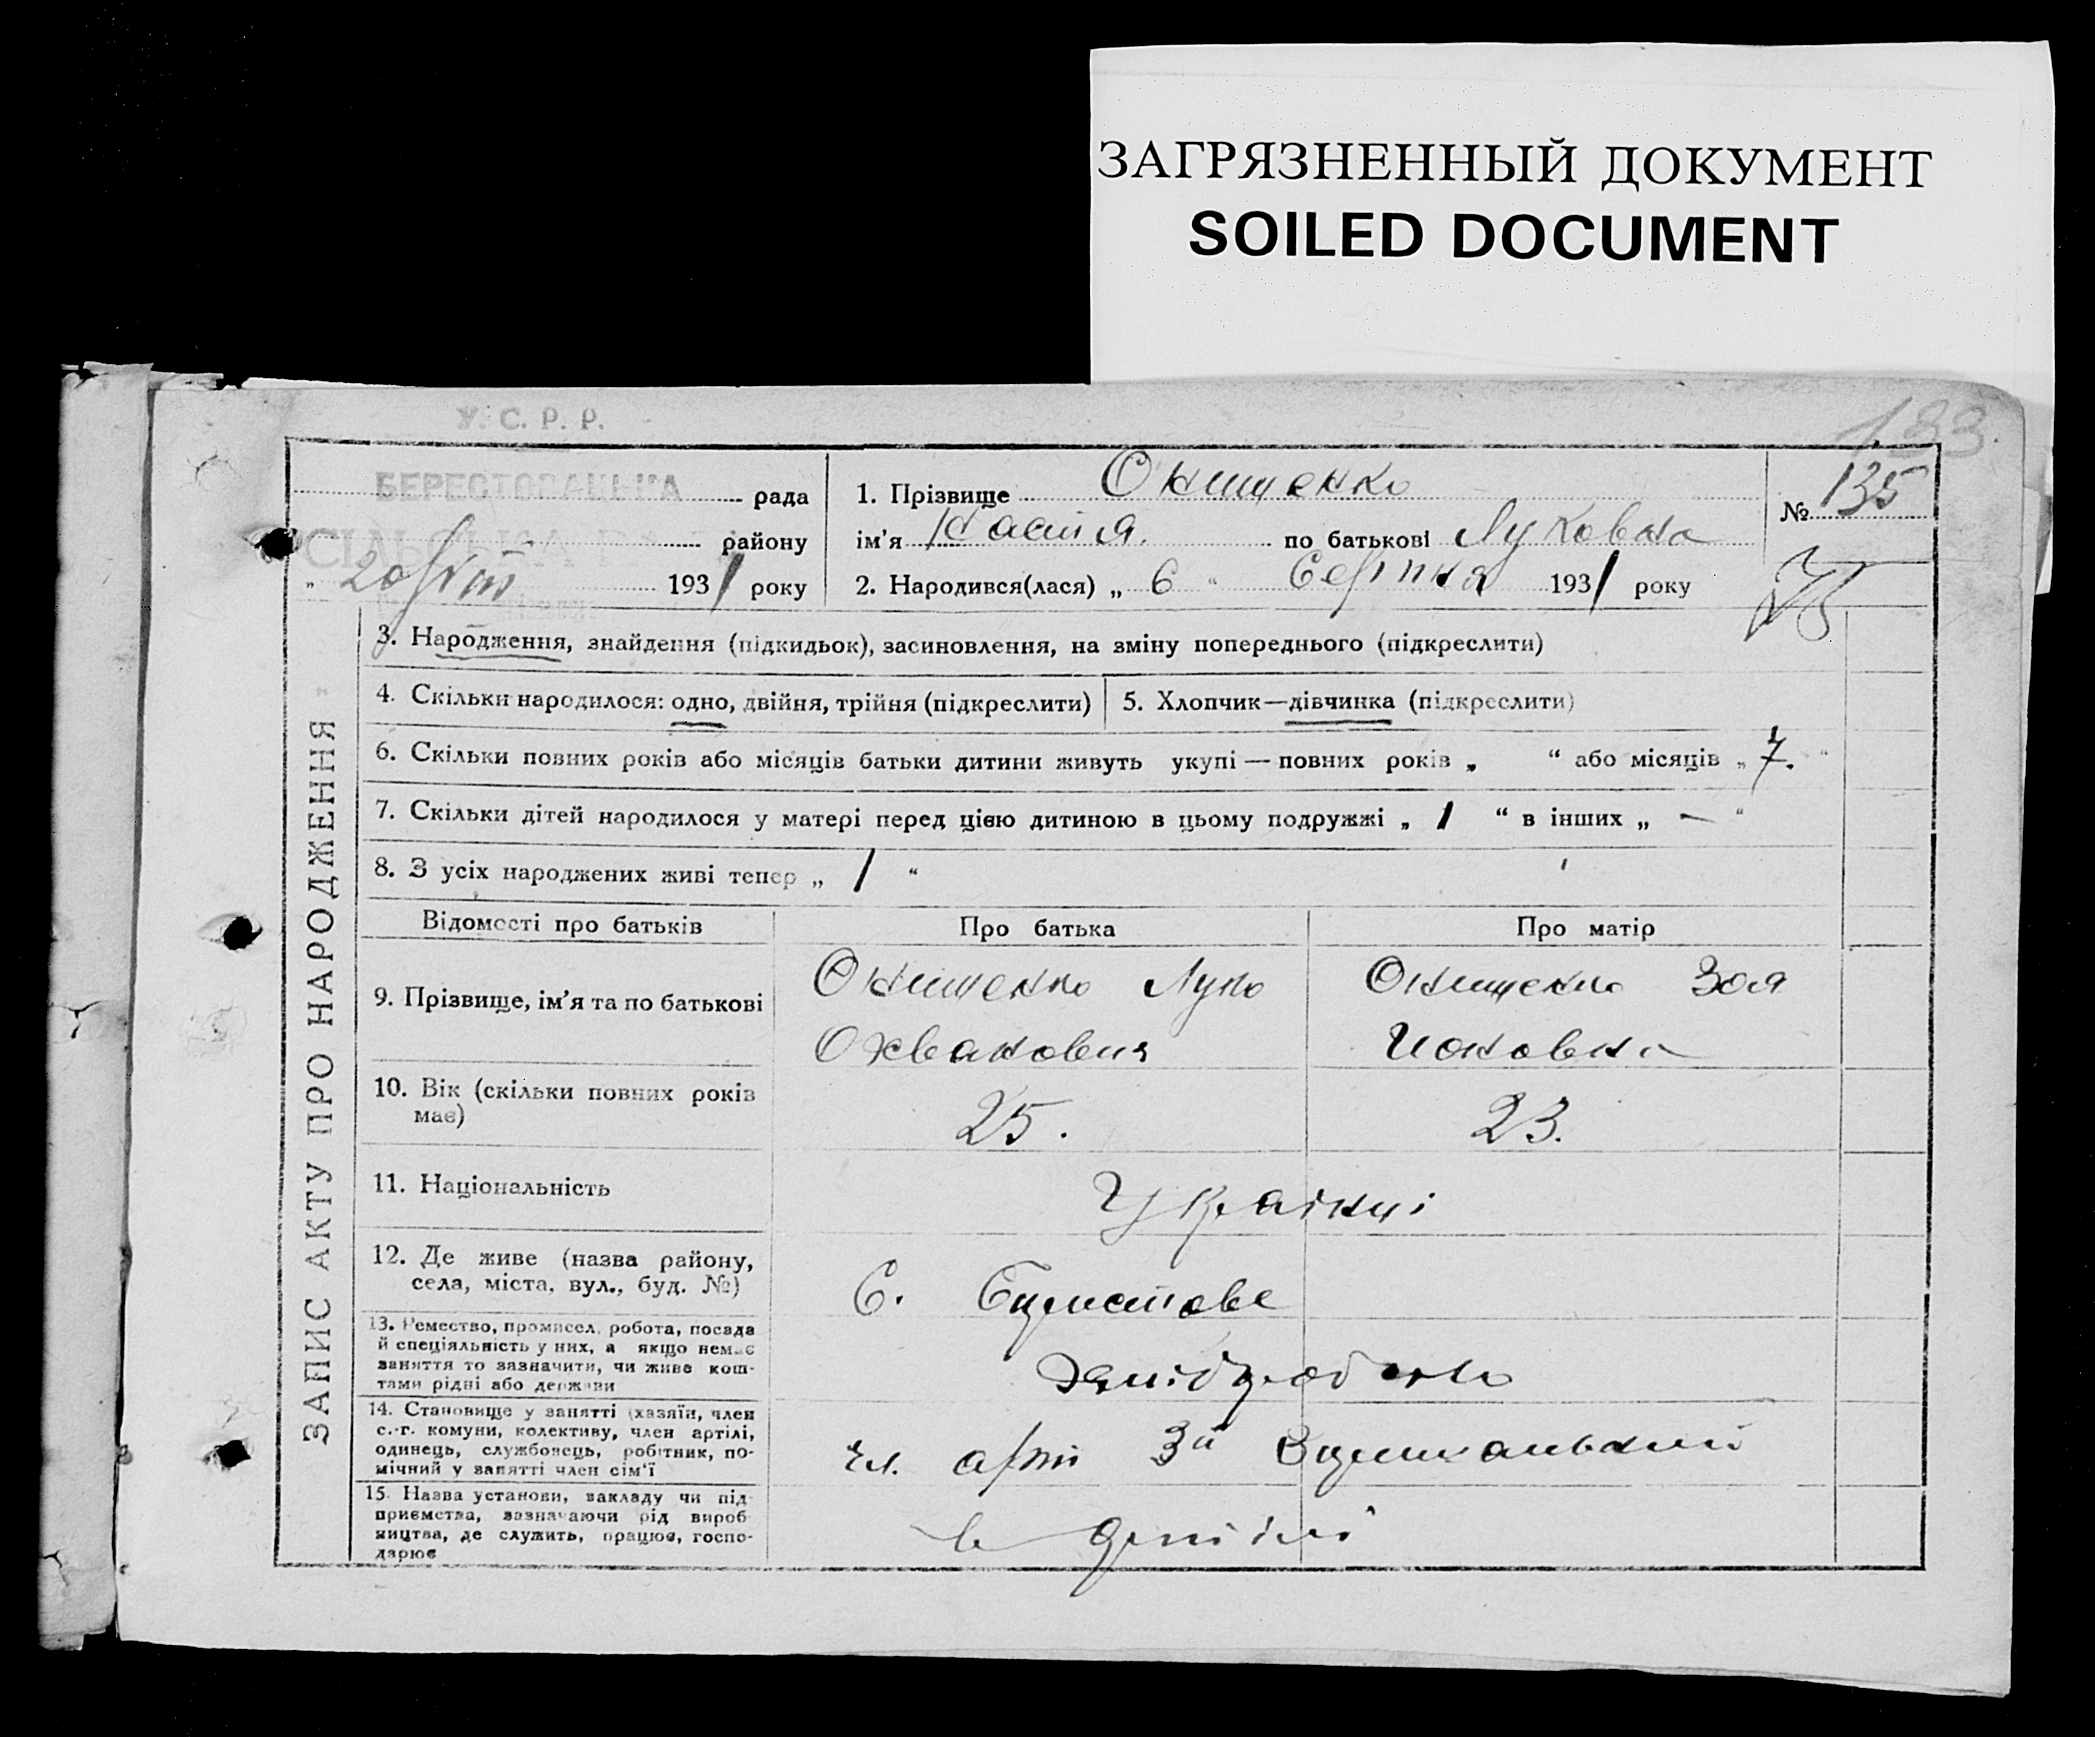 ЗАГРЯЗНЕННЫЙ ДОКУМЕНТ
SOILED DOCUMENT
У. С. Р. Р.
133
БЕРЕСТОВАЦЬКА рада
СІЛЬСЬКА
району
„ 20/VIII 1931 року
1. Прізвище Онищенко
ім'я Настя. по батькові Луковна
2. Народився(лася) „ 6 “ Серпня 1931 року
№ 135
ЗАПИС АКТУ ПРО НАРОДЖЕННЯ
3. Народження, знайдення (підкидьок), засиновлення, на зміну попереднього (підкреслити)
4. Скільки народилося: одно, двійня, трійня (підкреслити)
5. Хлопчик—дівчинка (підкреслити)
6. Скільки повних років або місяців батьки дитини живуть укупі — повних років „ “ або місяців „ 7. “
7. Скільки дітей народилося у матері перед цією дитиною в цьому подружжі „ 1 “ в інших „ — “
8. З усіх народжених живі тепер „ 1 “
Відомості про батьків Про батька Про матір
9. Прізвище, ім'я та по батькові
Онищенко Луко
Онищенко Зоя
10. Вік (скільки повних років має)
25.
23.
11. Національність
Українці
12. Де живе (назва району,
села, міста, вул., буд. №)
С.
13. Ремество, промисел, робота, посада
й спеціяльність у них, а якщо немає
заняття то зазначити, чи живе кош-
тами рідні або держави
Хліборобство
14. Становище у занятті (хазяїн, член
с.-г. комуни, колективу, член артілі,
одинець, службовець, робітник, по-
мічний у занятті член сім'ї
чл. арт
15. Назва установи, закладу чи під-
приємства, зазначаючи рід вироб-
ництва, де служить, працює, госпо-
дарює
в артілі